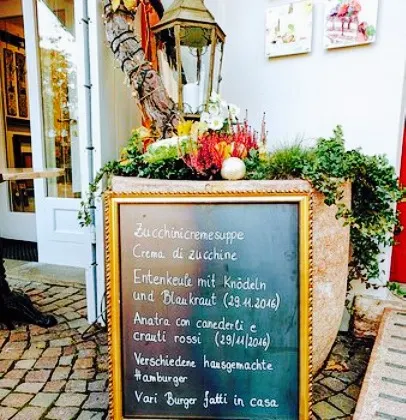 Zucchinicremesuppe
Crema di zucchine
Entenkeule mit Knödeln
und Blaukraut (29.11.2016)
Anatra con canederli e
crauti rossi (29/11/2016)
Verschiedene hausgemachte
Hamburger
Vari Burger fatti in casa